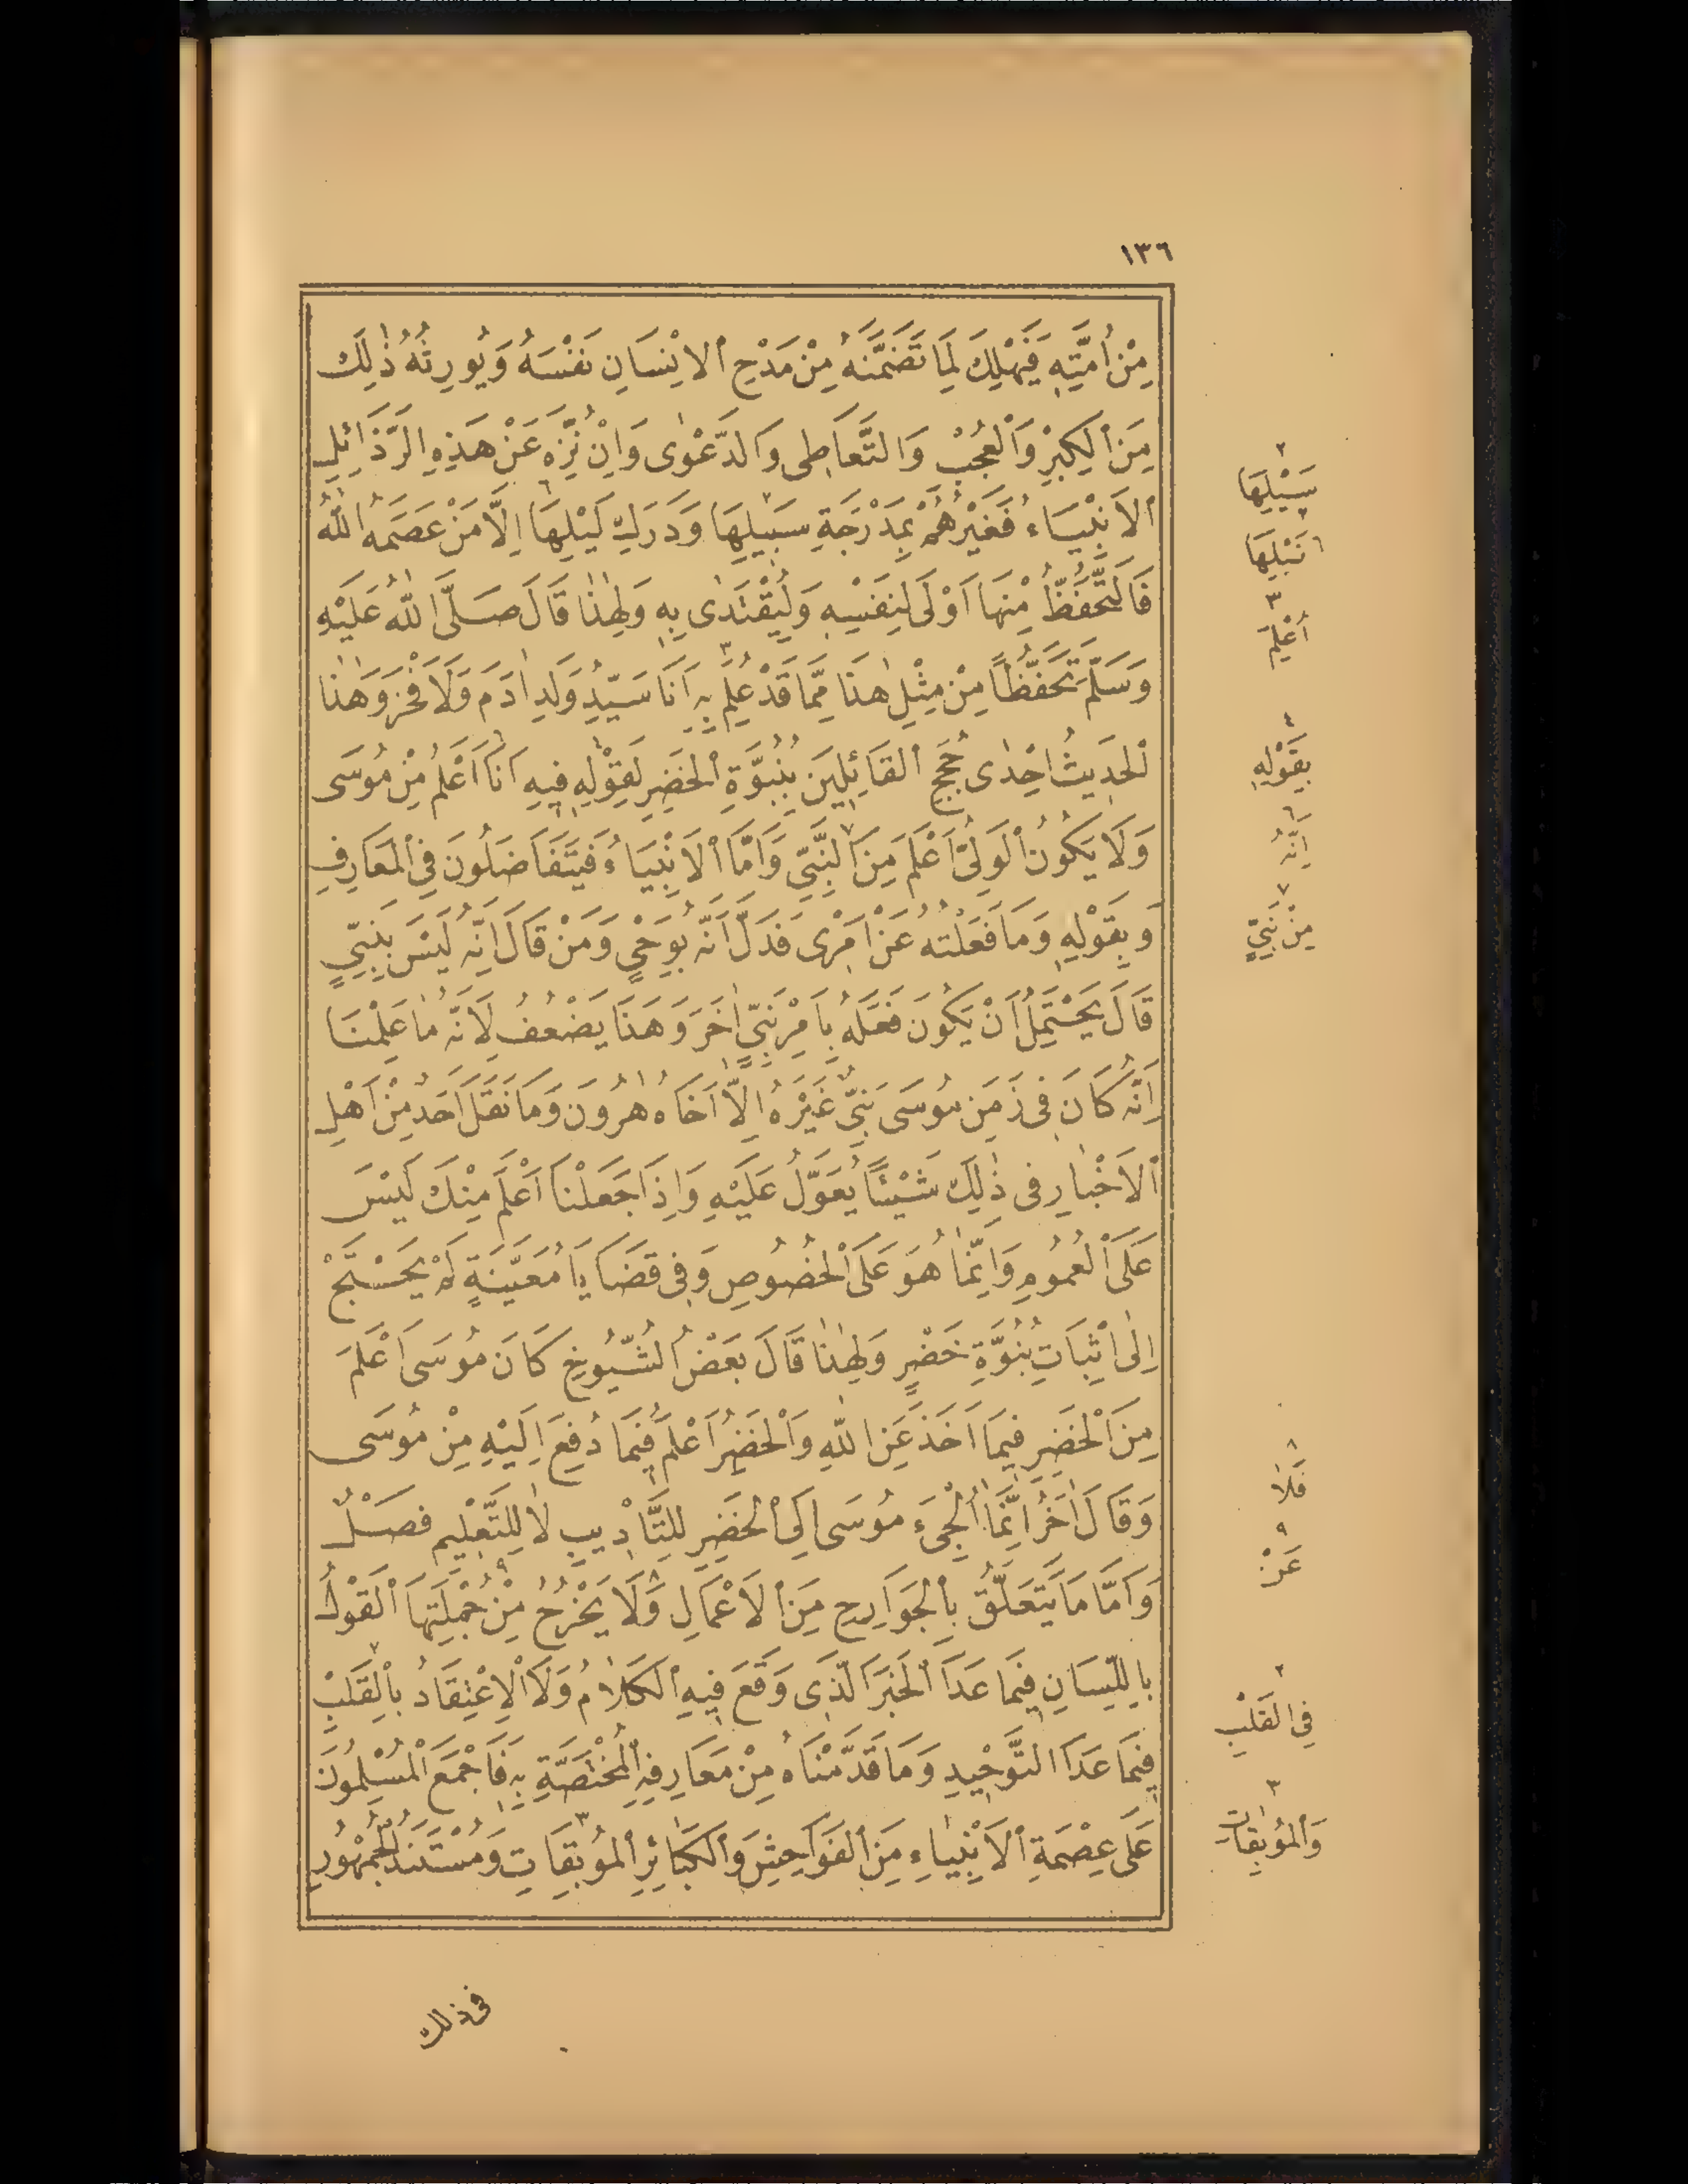 ١٣٦
مِنْ أُمَّتِهِ فَيَهْلِكَ لِمَا تَضَمَّنَهُ مِنْ مَدْحِ الْاِنْسَانِ نَفْسَهُ وَيُورِثُهُ ذٰلِكَ
مِنَ الْكِبْرِ وَالْعُجْبِ وَالتَّعَاطِى وَالدَّعْوٰى وَاِنْ نُزِّهَ عَنْ هٰذِهِ الرَّذَائِلِ
الْاَنْبِيَاءُ فَغَيْرُهُمْ بِمَدْرَجَةِ سَبِيلِهَا وَدَرَكِ لَيْلِهَا اِلَّا مَنْ عَصَمَهُ اللّٰهُ
فَالتَّحَفُّظُ مِنْهَا اَوْلٰى لِنَفْسِهِ وَلِيُقْتَدٰى بِهِ وَلِهٰذَا قَالَ صَلَّى اللّٰهُ عَلَيْهِ
وَسَلَّمَ تَحَفُّظًا مِنْ مِثْلِ هٰذَا مِمَّا قَدْ عُلِمَ بِهِ اَنَا سَيِّدُ وَلَدِ اٰدَمَ وَلَا فَخْرَ وَهٰذَا
الْحَدِيثُ اِحْدٰى حُجَجِ الْقَائِلِينَ بِنُبُوَّةِ الْخَضِرِ لِقَوْلِهِ فِيهِ اَنَا اَعْلَمُ مِنْ مُوسَى
وَلَا يَكُونُ الْوَلِىُّ اَعْلَمَ مِنَ النَّبِىِّ وَاَمَّا الْاَنْبِيَاءُ فَيَتَفَاضَلُونَ فِى الْمَعَارِفِ
وَبِقَوْلِهِ وَمَا فَعَلْتُهُ عَنْ اَمْرِى فَدَلَّ اَنَّهُ بِوَحْىٍ وَمَنْ قَالَ اِنَّهُ لَيْسَ بِنَبِىٍّ
قَالَ يَحْتَمِلُ اَنْ يَكُونَ فَعَلَهُ بِاَمْرِ نَبِىٍّ اٰخَرَ وَهٰذَا يَضْعُفُ لِاَنَّهُ مَا عَلِمْنَا
اَنَّهُ كَانَ فِى زَمَنِ مُوسَى نَبِىٌّ غَيْرُهُ اِلَّا اَخَاهُ هٰرُونَ وَمَا نَقَلَ اَحَدٌ مِنْ اَهْلِ
الْاَخْبَارِ فِى ذٰلِكَ شَيْئًا يُعَوَّلُ عَلَيْهِ وَاِذَا جَعَلْنَا اَعْلَمَ مِنْكَ لَيْسَ
عَلَى الْعُمُومِ وَاِنَّمَا هُوَ عَلَى الْخُصُوصِ وَفِى قَضَايَا مُعَيَّنَةٍ لَمْ يَحْتَجْ
اِلٰى اِثْبَاتِ نُبُوَّةِ خَضِرٍ وَلِهٰذَا قَالَ بَعْضُ الشُّيُوخِ كَانَ مُوسَى اَعْلَمَ
مِنَ الْخَضِرِ فِيمَا اَخَذَ عَنِ اللّٰهِ وَالْخَضِرُ اَعْلَمُ فِيمَا دُفِعَ اِلَيْهِ مِنْ مُوسَى
وَقَالَ اٰخَرُ اِنَّمَا اُلْجِىءَ مُوسَى اِلَى الْخَضِرِ لِلتَّأْدِيبِ لَا لِلتَّعْلِيمِ فَصْلٌ
وَاَمَّا مَا يَتَعَلَّقُ بِالْجَوَارِحِ مِنَ الْاَعْمَالِ وَلَا يَخْرُجُ مِنْ جُمْلَتِهَا الْقَوْلُ
بِاللِّسَانِ فِيمَا عَدَا الْخَبَرَ الَّذِى وَقَعَ فِيهِ الْكَلَامُ وَلَا الْاِعْتِقَادُ بِالْقَلْبِ
فِيمَا عَدَا التَّوْحِيدِ وَمَا قَدَّمْنَاهُ مِنْ مَعَارِفِهِ الْمُخْتَصَّةِ بِهِ فَاَجْمَعَ الْمُسْلِمُونَ
عَلٰى عِصْمَةِ الْاَنْبِيَاءِ مِنَ الْفَوَاحِشِ وَالْكَبَائِرِ الْمُوبِقَاتِ وَمُسْتَنَدُ الْجُمْهُورِ
فى ذلك
٢
سَيْلِهَا
٦ نَيْلِهَا
٣
اُعْلِمَ
٤
بِقَوْلِهِ
٦
اِنَّهُ
٧
مِنْ نَبِىٍّ
٨
فَلَا
٩
عَنْ
٢
فِى الْقَلْبِ
٣
وَالْمُوبِقَاتِ